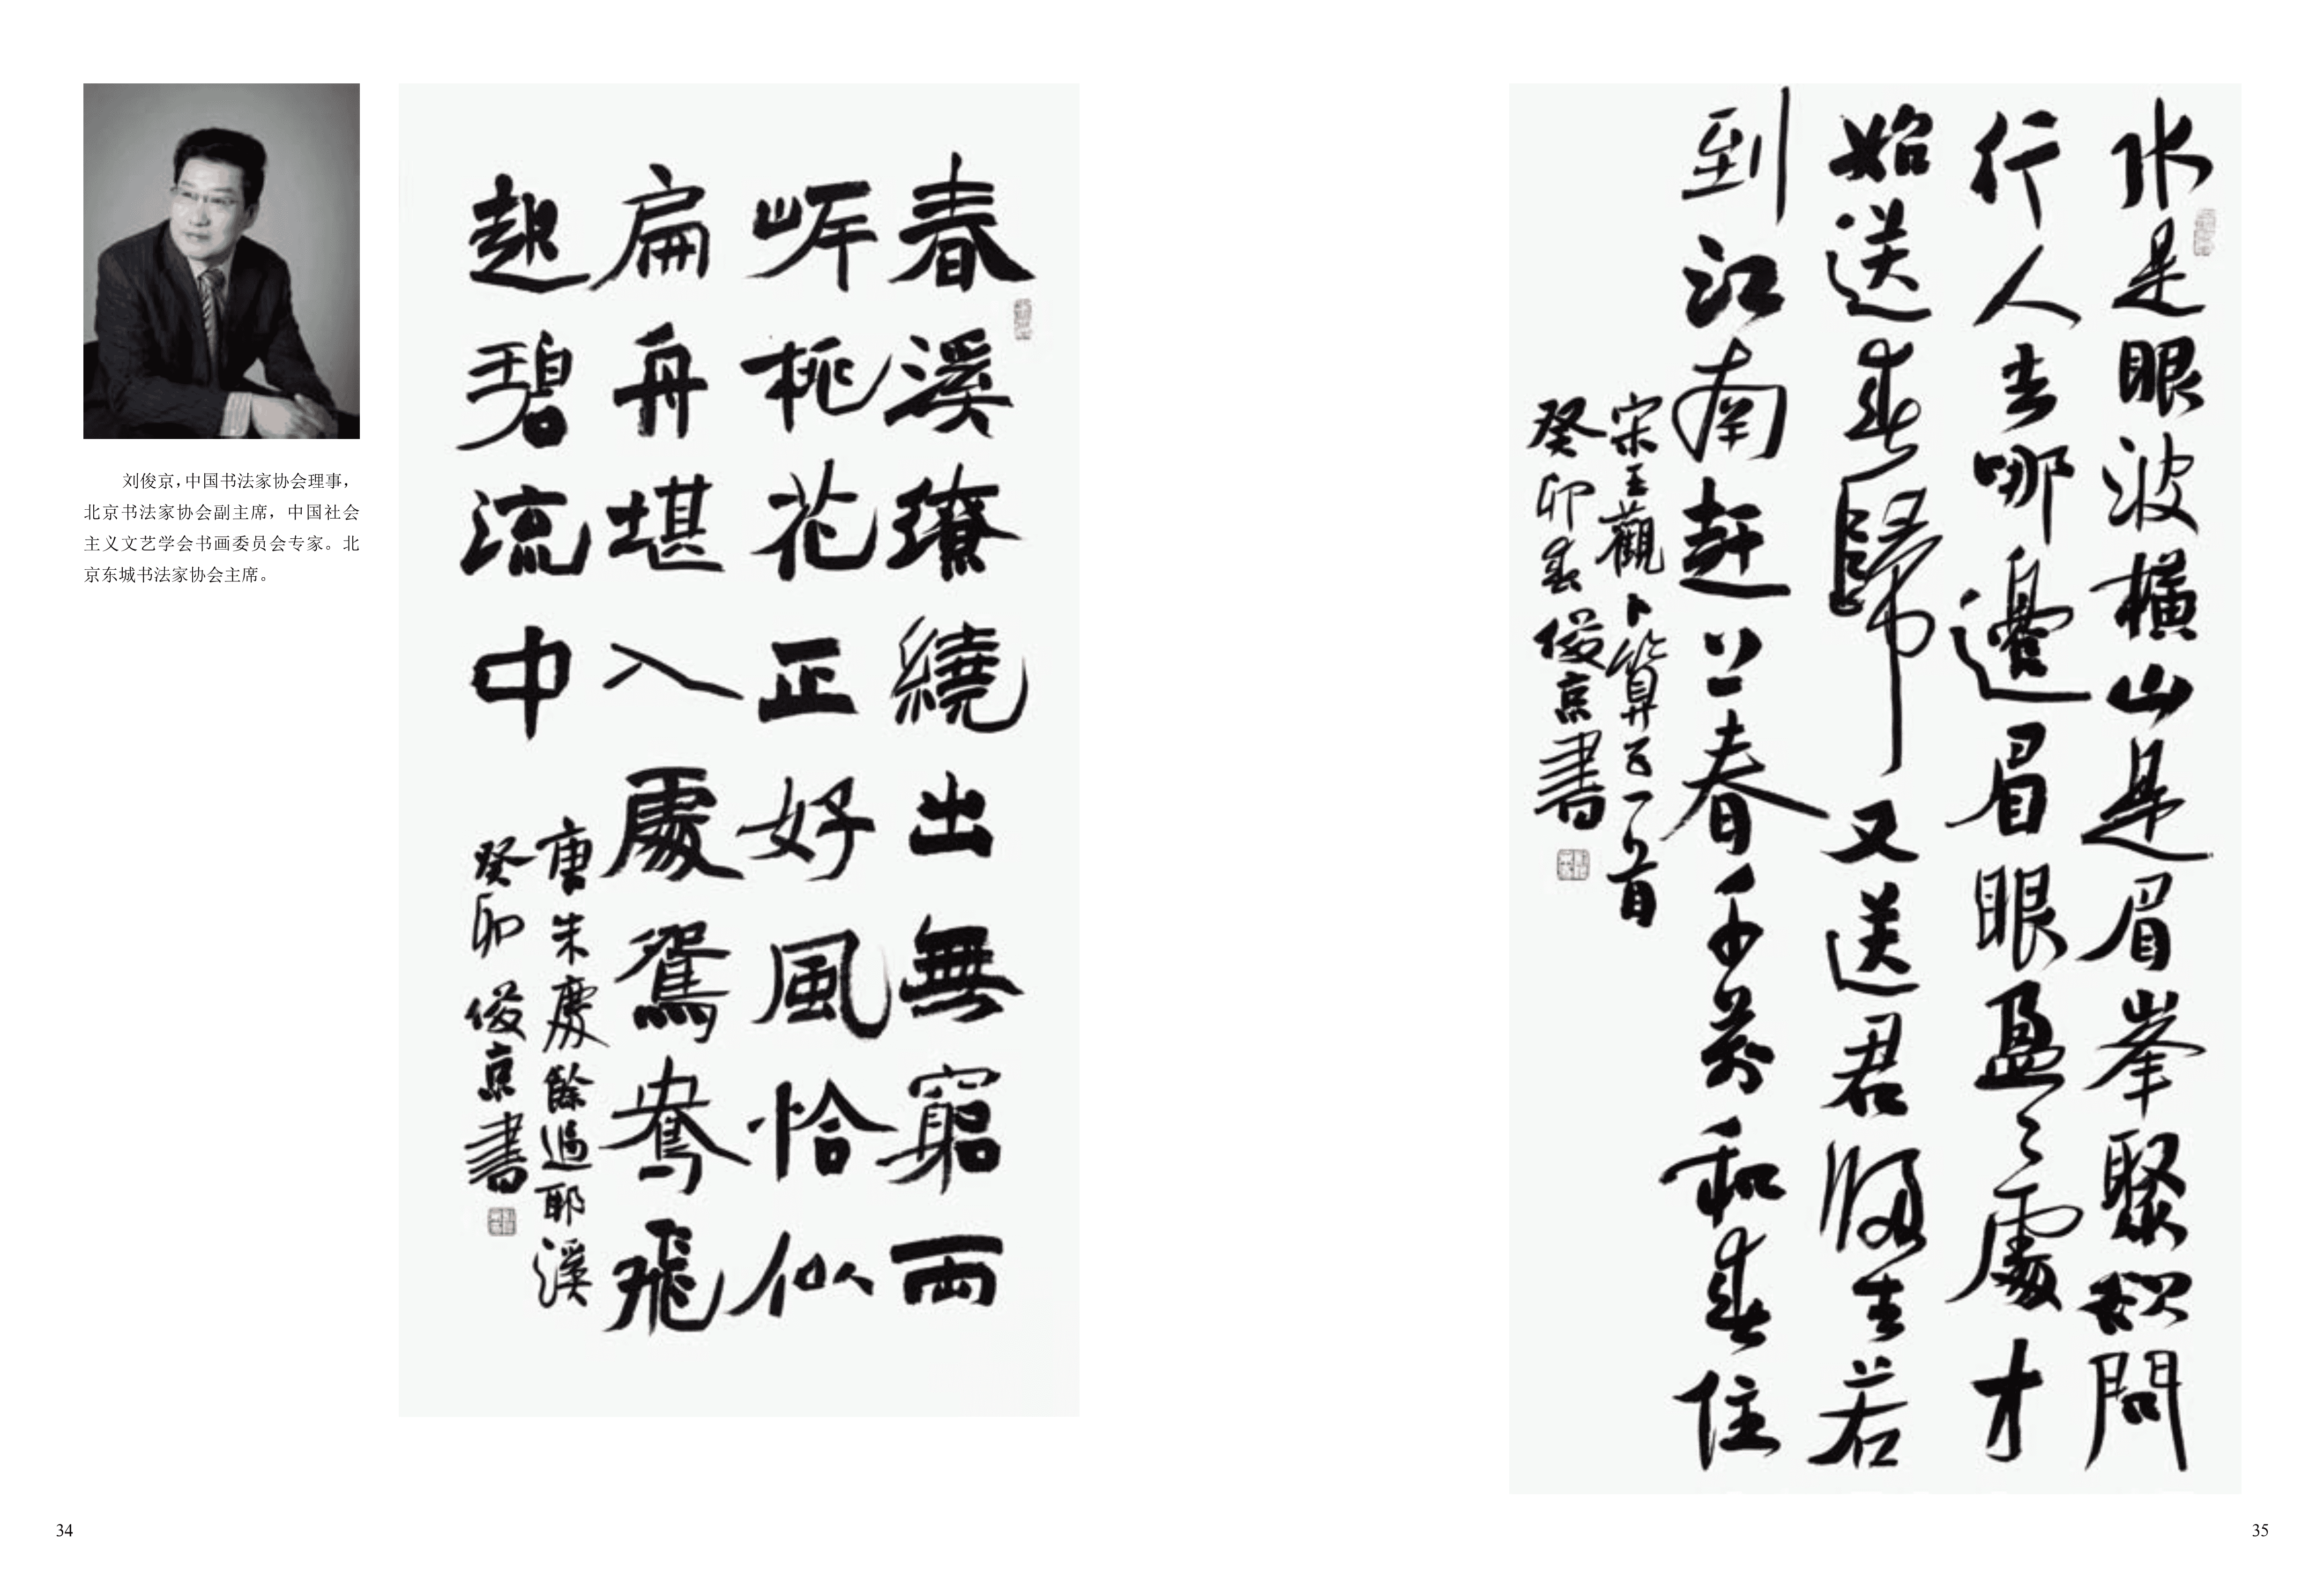 刘俊京，中国书法家协会理事，
北京书法家协会副主席，中国社会
主义文艺学会书画委员会专家。北
京东城书法家协会主席。
春溪繚繞出無窮兩
岸桃花正好風恰似
扁舟堪入處鴛鴦飛
起碧流中
唐朱慶餘過耶溪
癸卯俊京書
34
水是眼波橫山是眉峯聚欲問
行人去哪邊眉眼盈々處才
始送春歸又送君歸去若
到江南趕上春千萬和春住
宋王觀卜算子一首
癸卯春俊京書
35